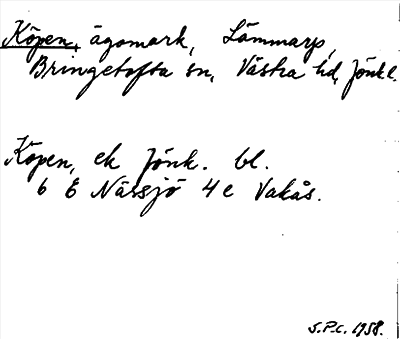 Köpen, ägomark, Lämmarp,
Bringetofta sn, Västra hd, Jönk l.
Köpen, ek Jönk. bl.
6 E Nässjö 4 e Vakås.
S.P.C. 1958.